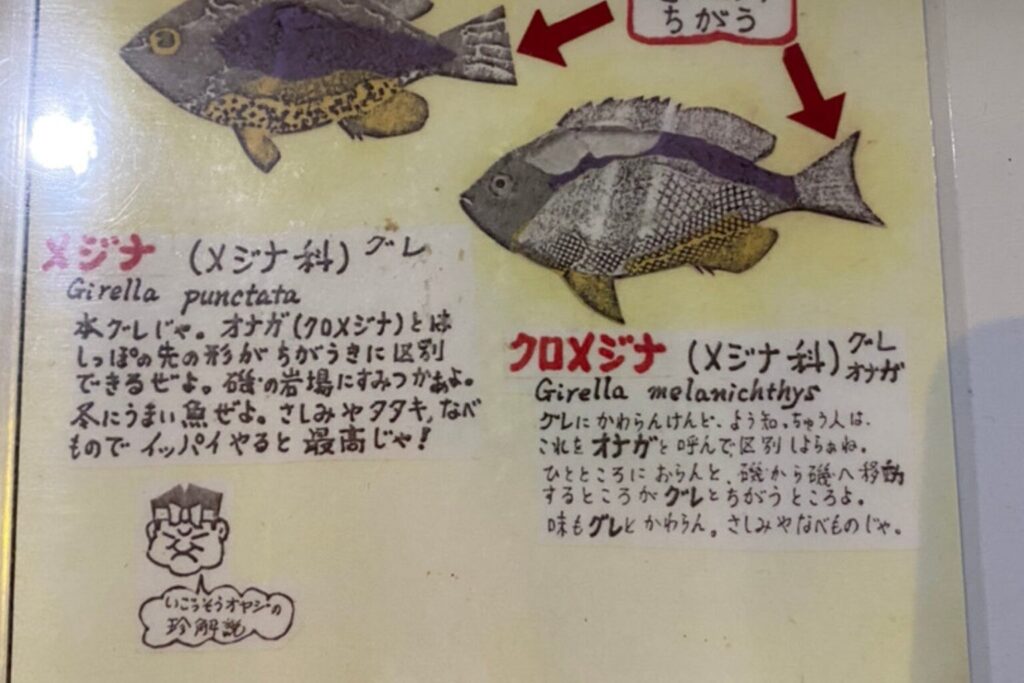 ちがう
メジナ (メジナ科) グレ
Girella punctata
本グレじゃ。オナガ(クロメジナ)とは
しっぽの先の形がちがうきに区別
できるぜよ。磯の岩場にすみつかあよ。
冬にうまい魚ぜよ。さしみやタタキ,なべ
ものでイッパイやると最高じゃ!
クロメジナ (メジナ科) グレ
オナガ
Girella melanichthys
グレにかわらんけんど、よう知っちゅう人は、
これをオナガと呼んで区別しよらぁね。
ひとところにおらんと、磯から磯へ移動
するところがグレとちがうところよ。
味もグレとかわらん。さしみやなべものじゃ。
いごっそうオヤジの
珍解説